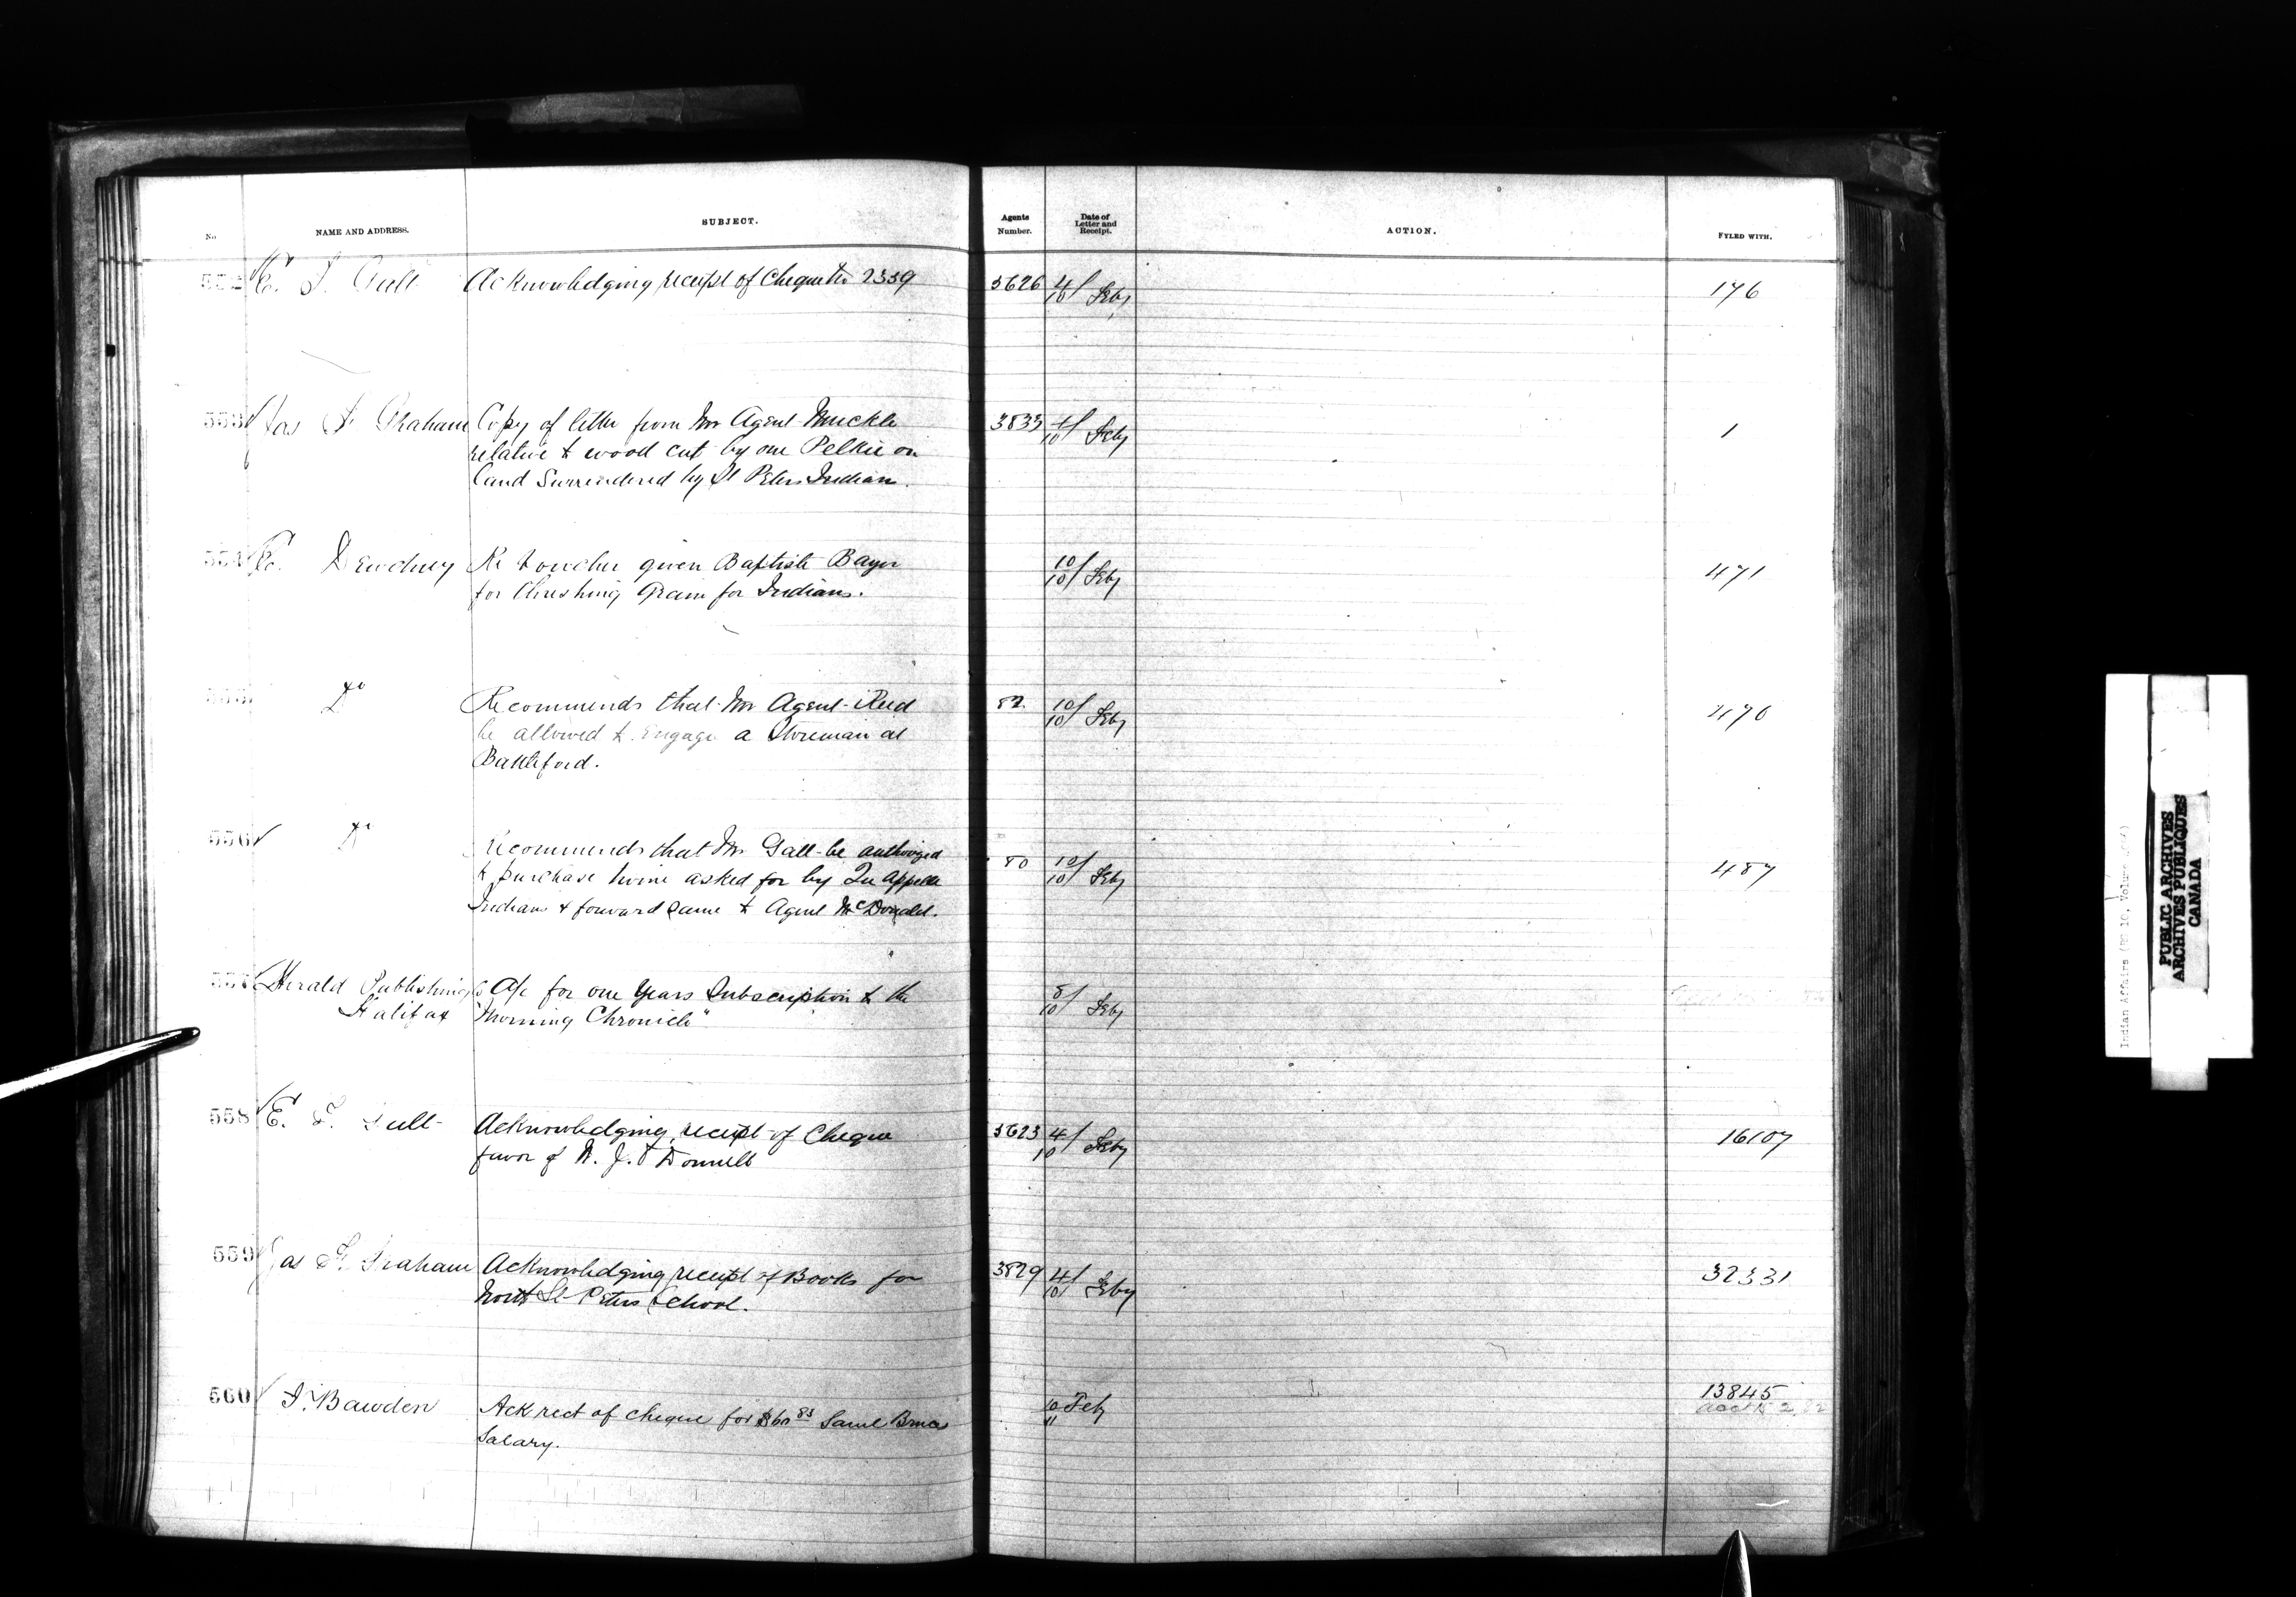 No. NAME AND ADDRESS. SUBJECT. Agents Number. Date of Letter and Receipt. ACTION. FYLED WITH.
552 E. F. Gult Acknowledging receipt of Cheque No 2339 3626 4/10 Feby 176
553 Jas F. Graham Copy of letter from Mr Agent Muckle 3833 4/10 Feby 1
relative to wood cut by one Pelkie on
land Surrendered by St Peters Indians.
554 E. Dewdney Re Voucher given Baptiste Bayer 10/10 Feby 471
for threshing Grain for Indians.
555 Do Recommends that Mr Agent Reid 82 10/10 Feby 470
be allowed to Engage a Storeman at
Battleford.
556 Do Recommends that Mr Galt be authorized 80 10/10 Feby 487
to purchase twine asked for by Qu'Appelle
Indians & forward same to Agent McDonald.
557 Herald Publishing Co A/c for one Years Subscription to the 8/10 Feby
Halifax "Morning Chronicle"
558 E. F. Gult Acknowledging receipt of Cheque 3623 4/10 Feby 16107
favor of W. J. O'Donnell
559 Jas F. Graham Acknowledging receipt of Books for 3829 4/10 Feby 32331
North St Peters School.
560 J. Bawden Ack rect of cheque for $60 83 Saml Bruce 10/11 Feby 13845
Salary.
Indian Affairs (RG 10, Volume
PUBLIC ARCHIVES
ARCHIVES PUBLIQUES
CANADA